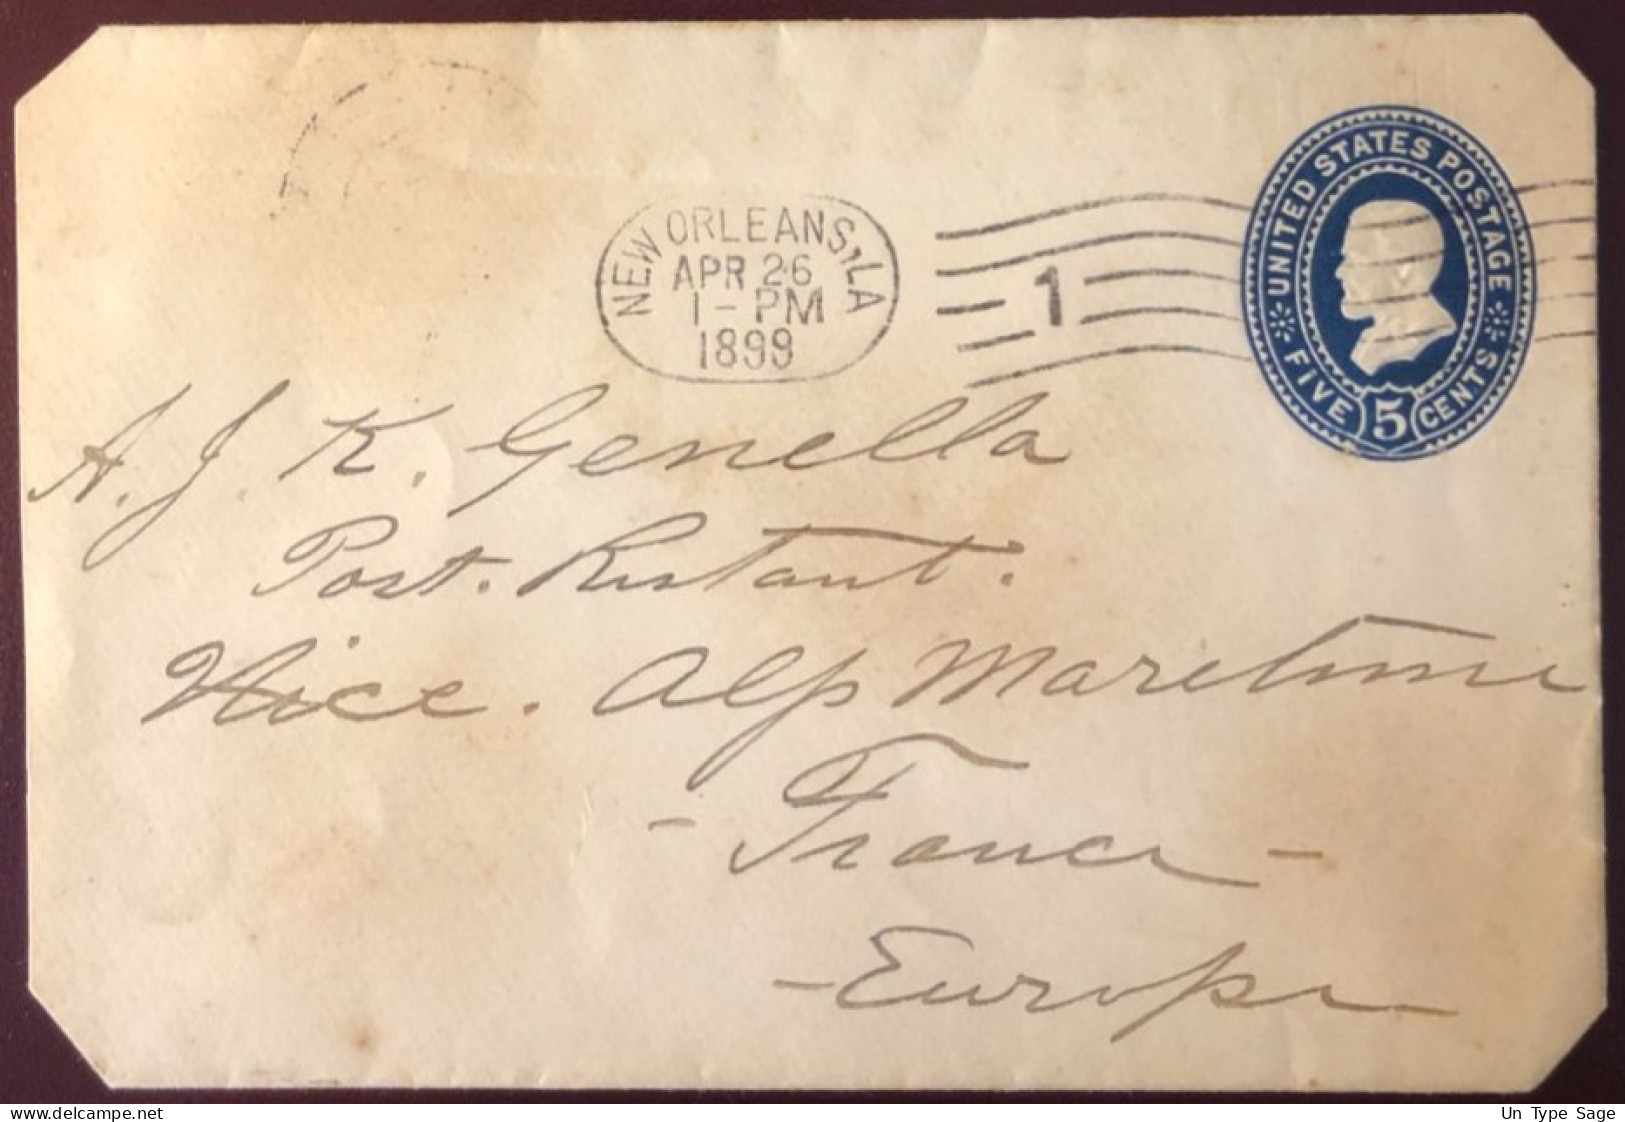 NEW ORLEANS, LA
APR 26
1-PM
1899
1
UNITED STATES POSTAGE
FIVE 5 CENTS
A. J. K. Genella
Post. Restant.
Nice. Alp Maretime
- France -
- Europe
delcampe.net
Un Type Sage